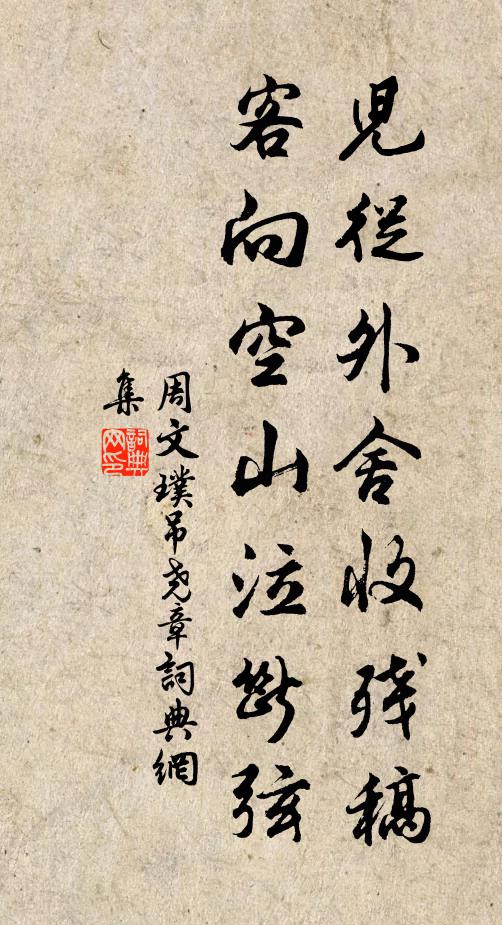 兒從外舍收殘稿
客向空山泣斷弦
周文璞吊堯章詞典網
集
詞典网印